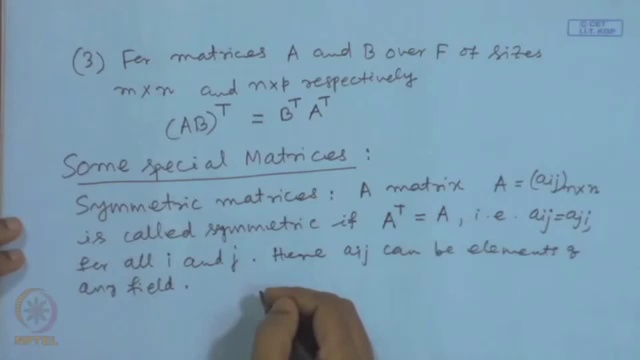 © CET
I.I.T. KGP
(3) For matrices A and B over F of sizes
m×n and n×p respectively
(AB)^T = B^T A^T
Some special Matrices :
Symmetric matrices : A matrix A = (aij)n×n
is called symmetric if A^T = A, i.e. aij = aji,
for all i and j. Here aij can be elements of
any field.
NPTEL